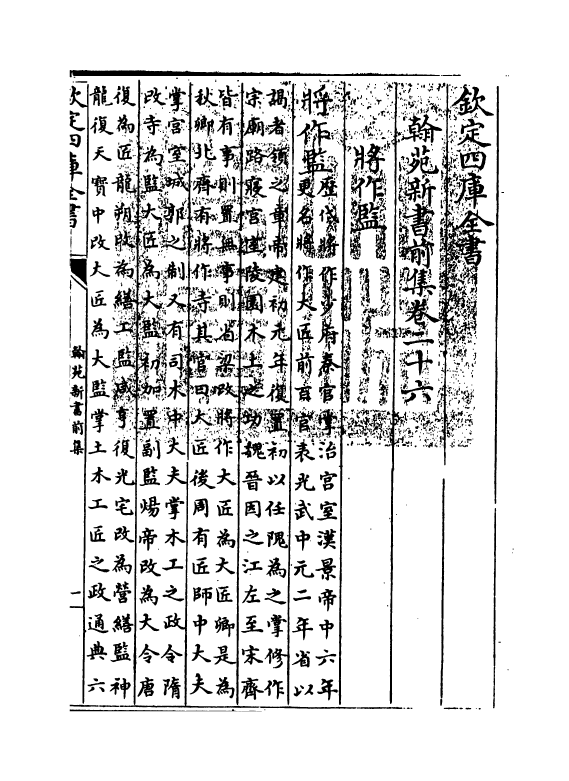 欽定四庫全書
翰苑新書前集卷二十六
將作監
將作監
歴代將作少府秦官掌治宫室漢景帝中六年
更名將作大匠前百官表光武中元二年省以
謁者領之章帝建初元年復置初以任隗為之掌修作
宗廟路寢宫室陵園木土之功魏晉因之江左至宋齊
皆有事則置無事則省梁改將作大匠為大匠卿是為
秋卿北齊有將作寺其官曰大匠後周有匠師中大夫
掌宫室城郭之制又有司木中大夫掌木工之政令隋
改寺為監大匠為大監初加置副監煬帝改為大令唐
復為匠龍朔改為繕工監咸亨復光宅改為營繕監神
龍復天寶中改大匠為大監掌土木工匠之政通典六
欽定四庫全書
翰苑新書前集
一